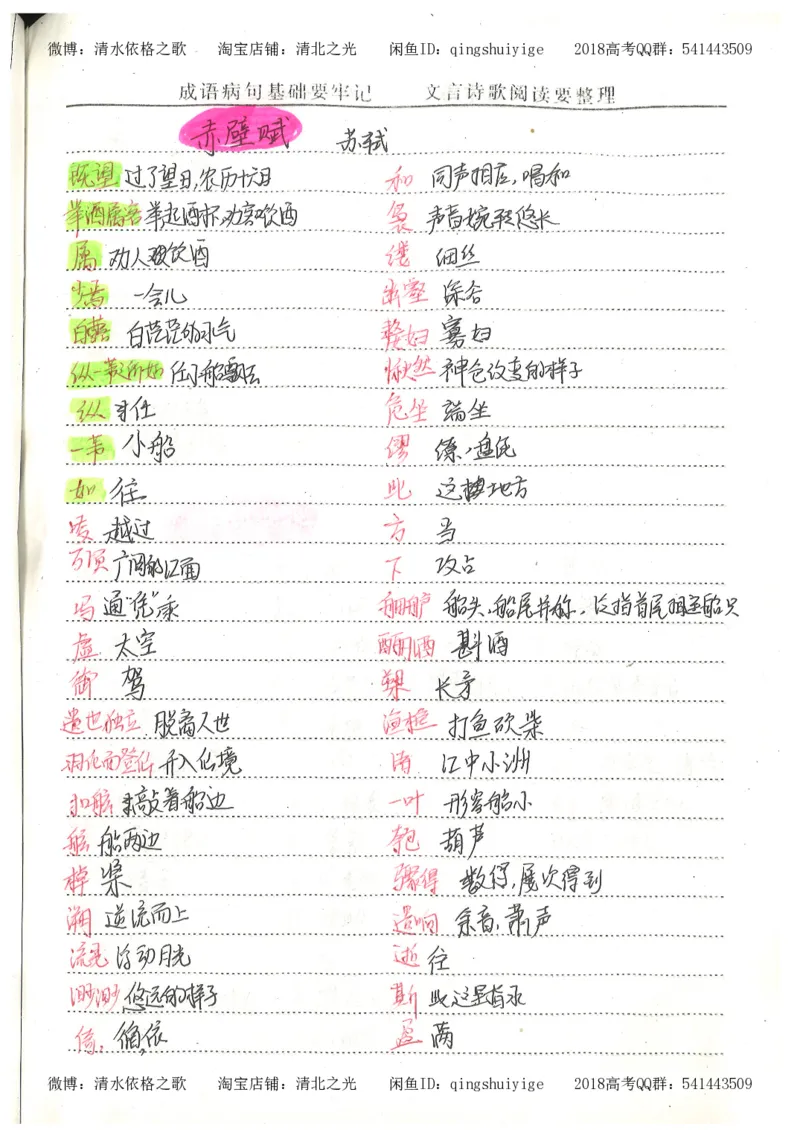 微博：清水依格之歌 淘宝店铺：清北之光 闲鱼ID：qingshuiyige 2018高考QQ群：541443509
成语病句基础要牢记 文言诗歌阅读要整理
赤壁赋 苏轼
既望 过了望日,农历十六日
举酒属客 举起酒杯,劝宾客饮酒
属 劝人饮酒
少焉 一会儿
白露 白茫茫的水气
纵一苇之所如 任小船飘去
纵 听任
一苇 小船
如 往
凌 越过
万顷 广阔的江面
冯 通“凭”乘
虚 太空
御 驾
遗世独立 脱离人世
羽化而登仙 升入仙境
扣舷 敲着船边
舷 船两边
棹 桨
溯 逆流而上
流光 浮动月光
渺渺 悠远的样子
倚 循,依
和 同声相应,唱和
袅 声音婉转悠长
缕 细丝
幽壑 深谷
嫠妇 寡妇
愀然 神色改变的样子
危坐 端坐
缪 缭,盘绕
此 这 地方
方 当
下 攻占
舳舻 船头、船尾并称,泛指首尾相连船只
酾酒 斟酒
槊 长矛
渔樵 打鱼砍柴
渚 江中小洲
一叶 形容船小
匏 葫芦
骤得 数得,屡次得到
遗响 余音,萧声
逝 往
斯 此,这里指水
盈 满
微博：清水依格之歌 淘宝店铺：清北之光 闲鱼ID：qingshuiyige 2018高考QQ群：541443509